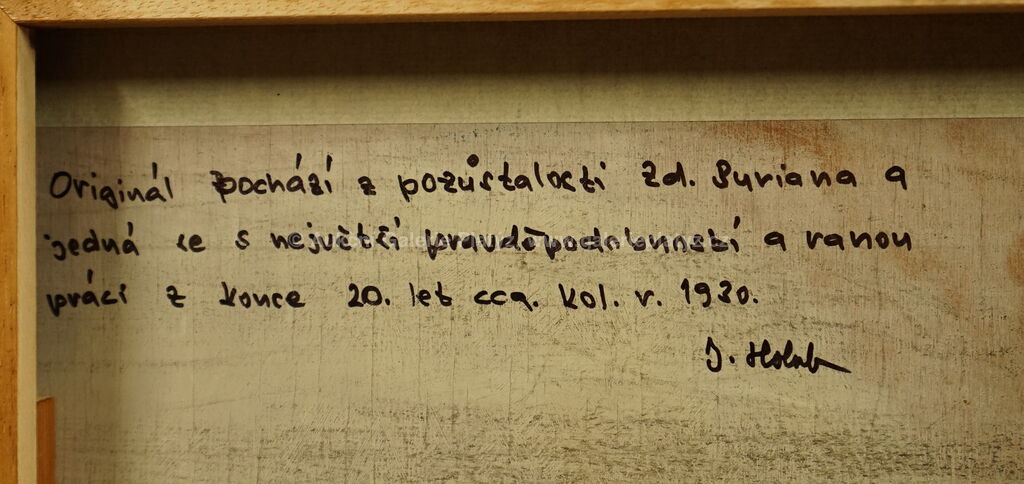 Originál pochází z pozůstalosti Zd. Buriana a
jedná se s největší pravděpodobností a ranou
práci z konce 20. let cca. kol. r. 1930.
J. Holub